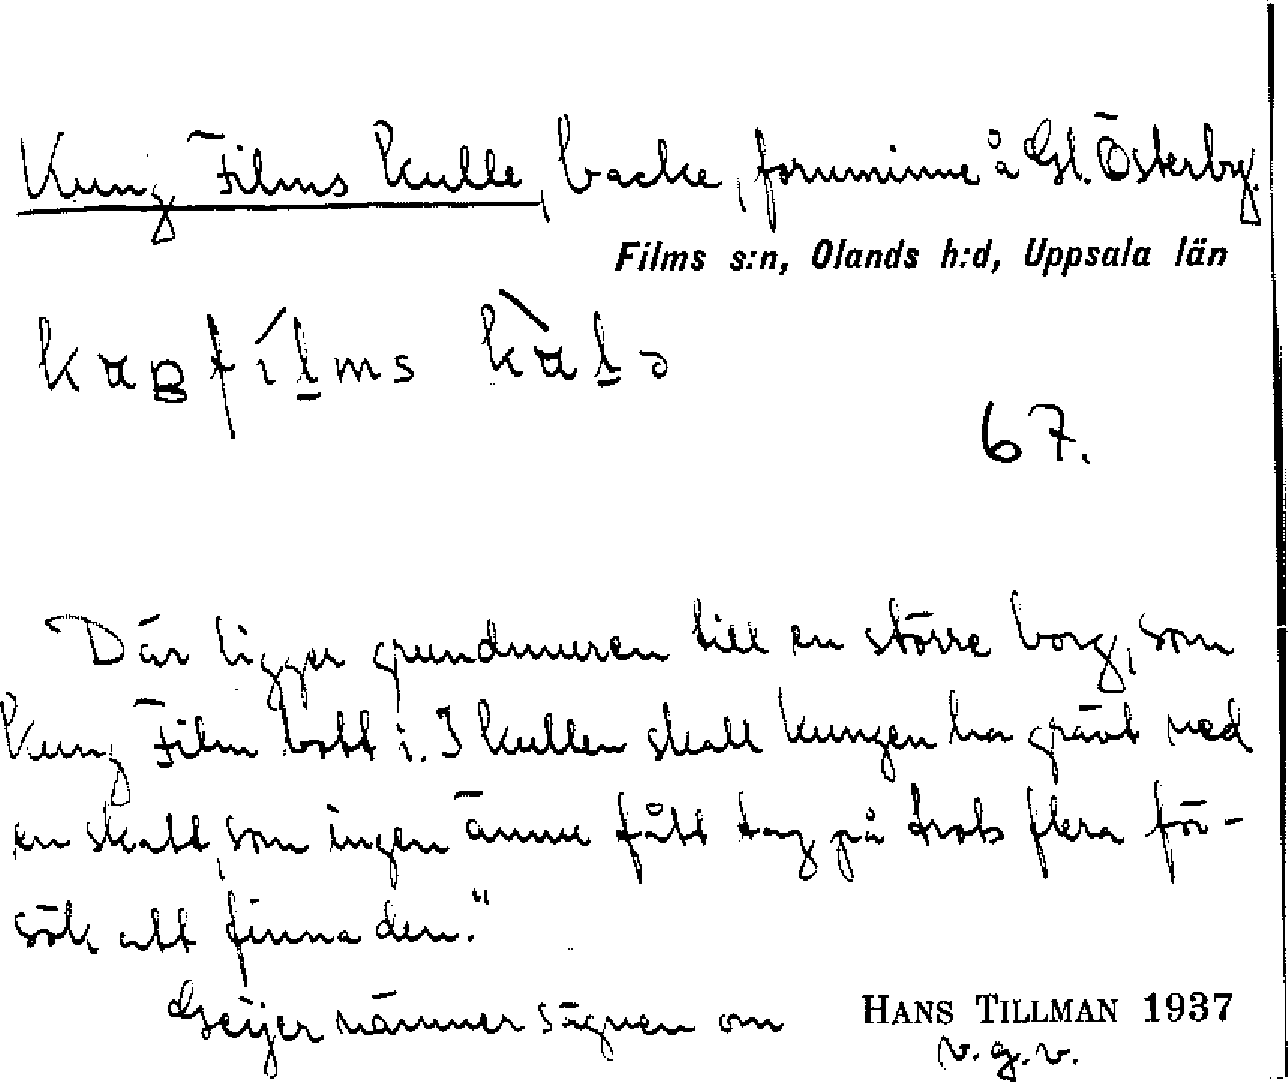 Kung Films kulle, backe, fornminne å Gl. Österby.
Films s:n, Olands h:d, Uppsala län
67.
Där ligger grundmuren till en större borg, som
Kung Film bott i. I kullen skall kungen ha grävt ned
en skatt, som ingen ännu fått tag på trots flera för-
sök att finna den."
Geijer nämner sägnen om
HANS TILLMAN 1937
v.g.v.